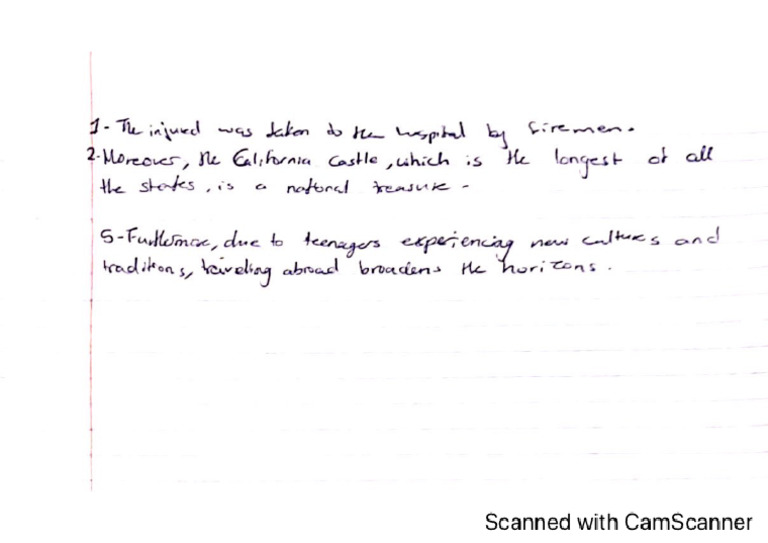 1- The injured was taken to the hospital by firemen.
2- Moreover, the California castle, which is the longest of all
the states, is a natural treasure.
5- Furthermore, due to teenagers experiencing new cultures and
traditions, traveling abroad broadens the horizons.
Scanned with CamScanner